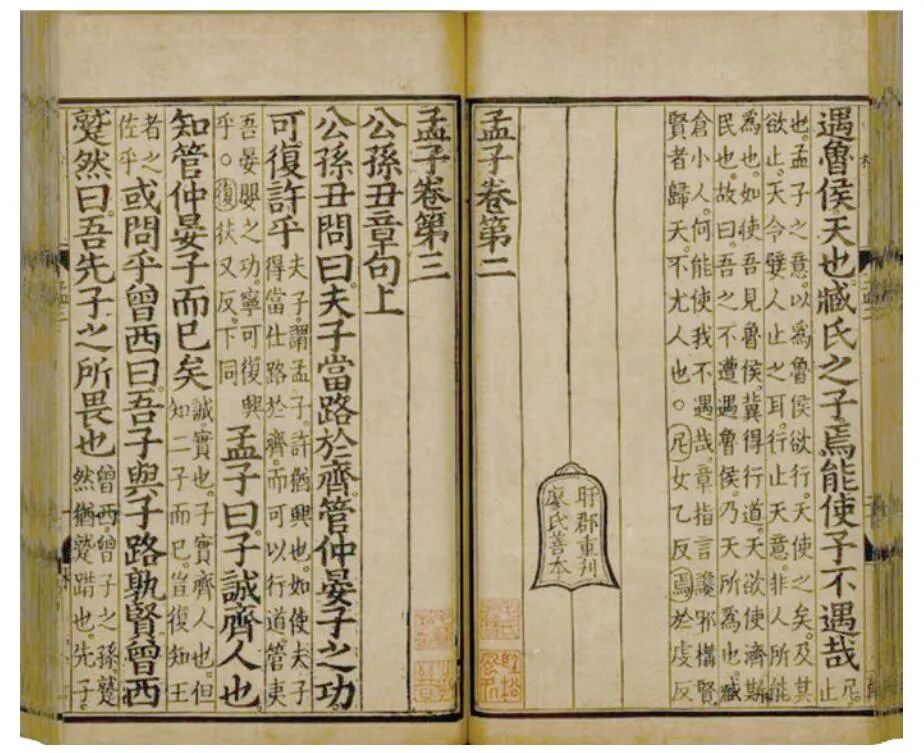 遇魯侯。天也。臧氏之子焉能使予不遇哉尼止
也。孟子之意。以爲魯侯欲行。天使之矣。及其
欲止。天令嬖人止之耳。行止天意。非人所能
爲也。如使吾見魯侯。冀得行道。天欲使濟斯
民也。故曰。吾之不遭遇魯侯。乃天所爲也。臧
倉小人。何能使我不遇哉。章指言讒邪搆賢
賢者歸天。不尤人也。○尼女乙反焉於虔反
旴郡重刊
廖氏善本
孟子卷第二
孟子卷第三
公孫丑章句上
公孫丑問曰。夫子當路於齊。管仲晏子之功
可復許乎夫子。謂孟子。許。猶興也。如使夫子得當仕路於齊。而可以行道。管夷
吾晏嬰之功。寧可復興乎。○復扶又反。下同孟子曰。子誠齊人也
知管仲晏子而已矣誠。實也。子實齊人也。但知二子而已。豈復知王
者之佐乎或問乎曾西曰。吾子與子路孰賢。曾西
蹵然曰。吾先子之所畏也曾西。曾子之孫。蹵然。猶蹵踖也。先子。